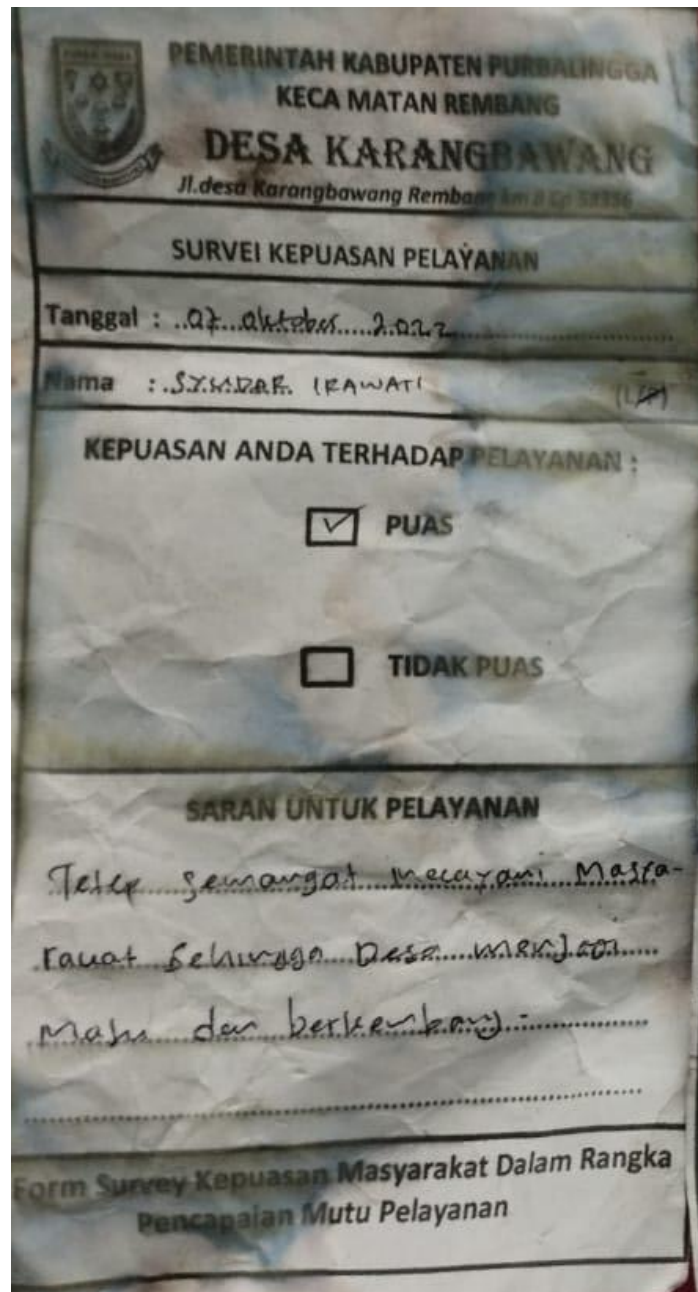 PEMERINTAH KABUPATEN PURBALINGGA
KECA MATAN REMBANG
DESA KARANGBAWANG
Jl.desa Karangbawang Rembang km
SURVEI KEPUASAN PELAYANAN
Tanggal : 07 Oktober 2022
Nama : IRAWATI (L/P)
KEPUASAN ANDA TERHADAP PELAYANAN :
PUAS
TIDAK PUAS
SARAN UNTUK PELAYANAN
Tetep semangat melayani Masya-
rakat sehingga Desa menjadi
Maju dan berkembang.
Form Survey Kepuasan Masyarakat Dalam Rangka
Pencapaian Mutu Pelayanan